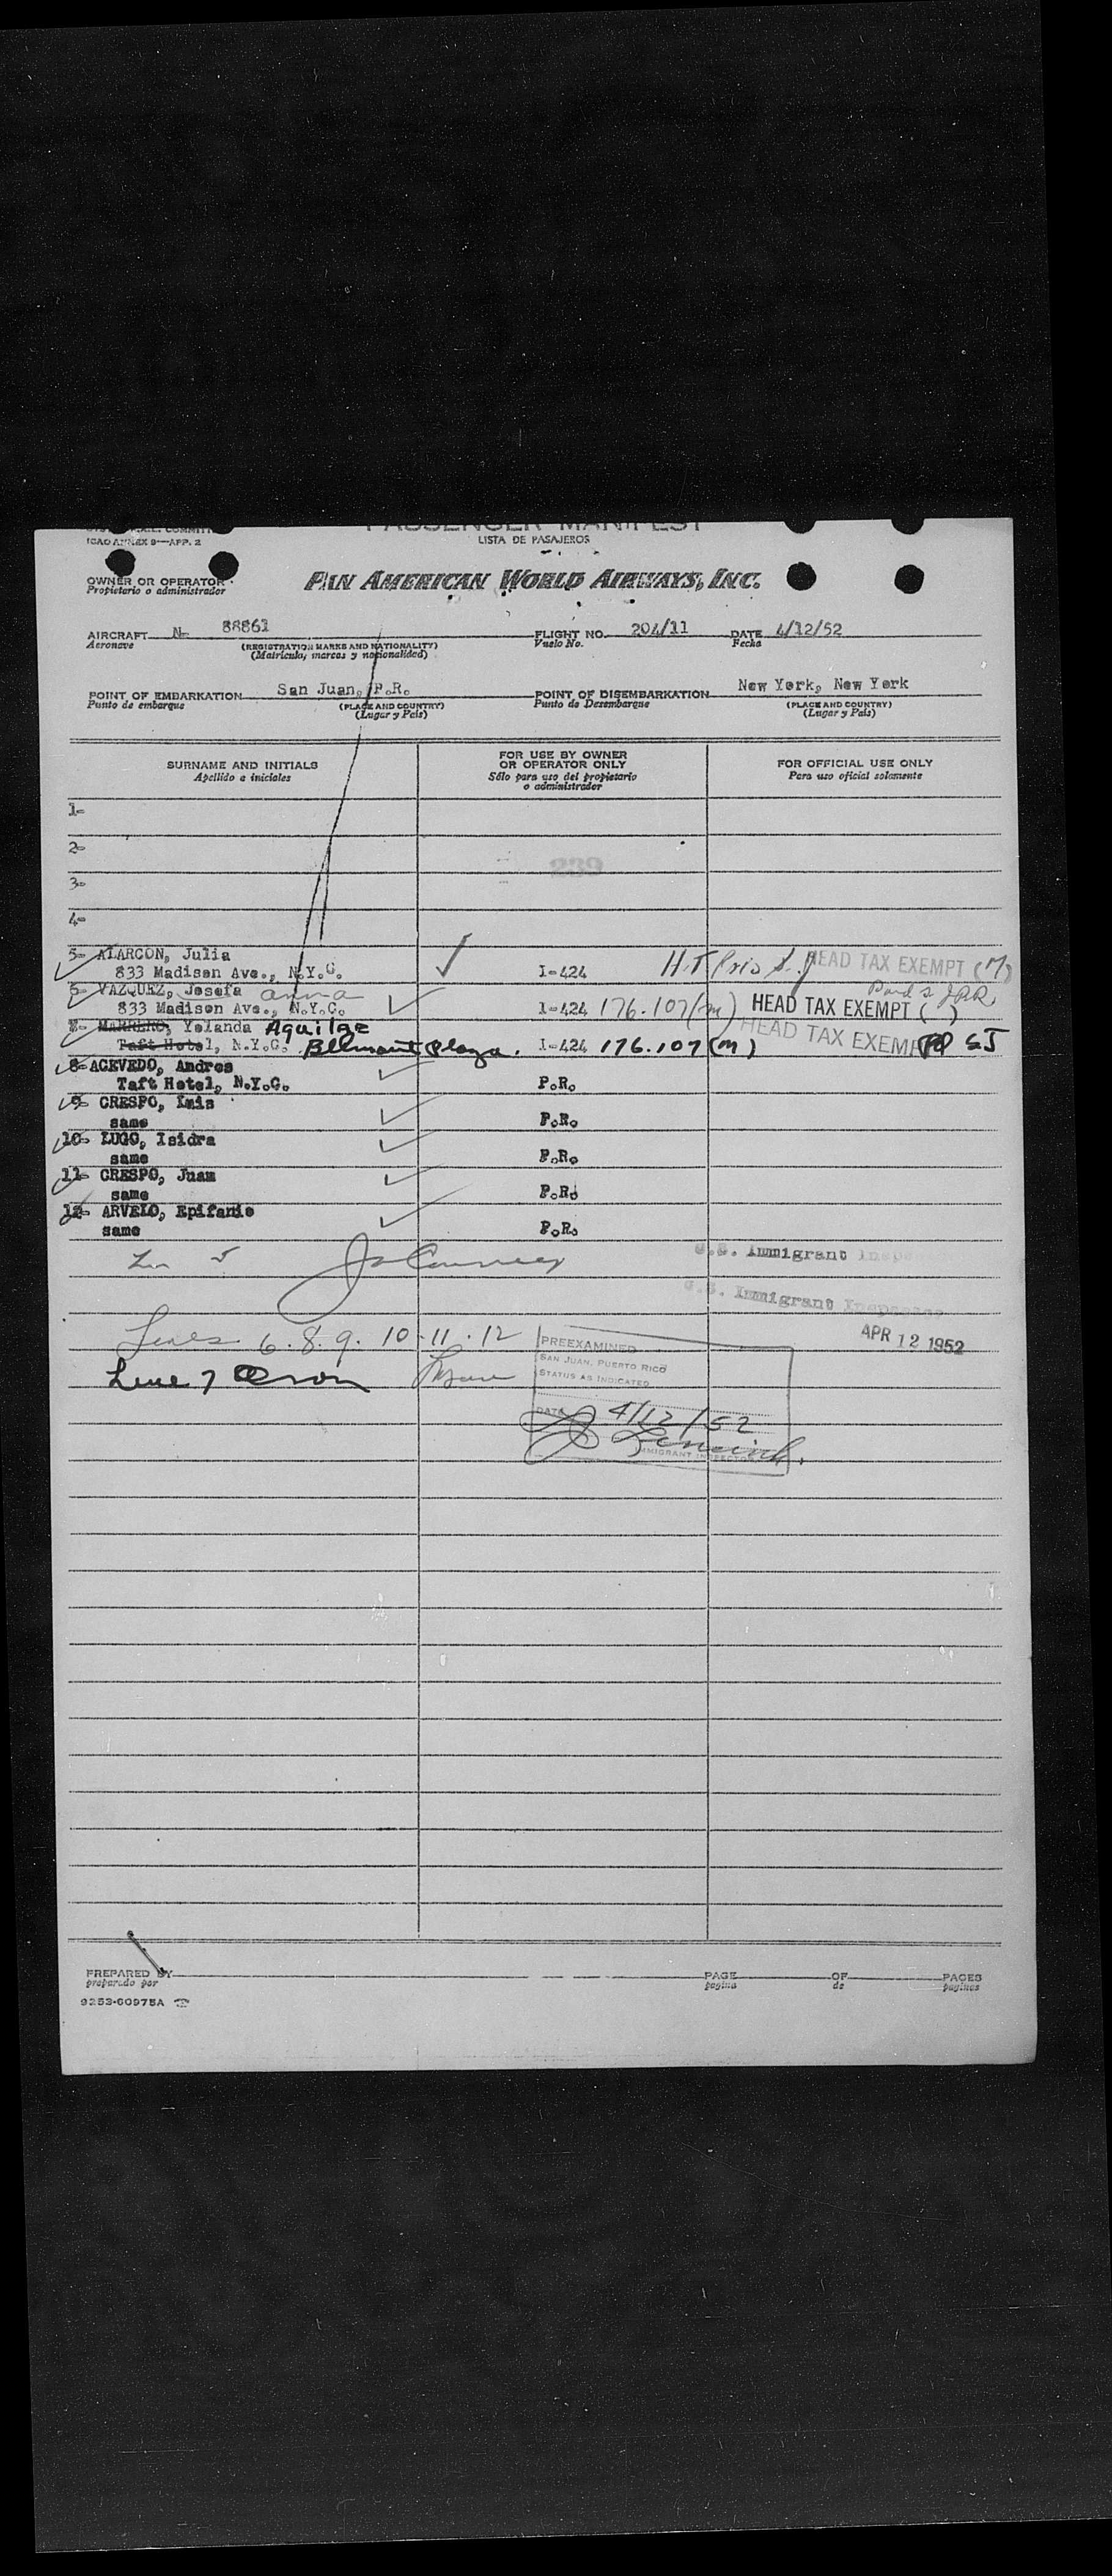 PASSENGER MANIFEST
ICAO ANNEX 9—APP. 2
LISTA DE PASAJEROS
OWNER OR OPERATOR
Propietario o administrador
PAN AMERICAN WORLD AIRWAYS, INC.
AIRCRAFT N- 88861 FLIGHT NO. 204/11 DATE 4/12/52
Aeronave (REGISTRATION MARKS AND NATIONALITY) Vuelo No. Fecha
(Matricula, marcas y nacionalidad)
POINT OF EMBARKATION San Juan, P.R. POINT OF DISEMBARKATION New York, New York
Punto de embarque (PLACE AND COUNTRY) Punto de Desembarque (PLACE AND COUNTRY)
(Lugar y Pais) (Lugar y Pais)
SURNAME AND INITIALS FOR USE BY OWNER OR OPERATOR ONLY FOR OFFICIAL USE ONLY
Apellido e iniciales Sólo para uso del propietario o administrador Para uso oficial solamente
1-
2-
239
3-
4-
5- ALARCON, Julia
833 Madison Ave., N.Y.C. I-424 H.T. HEAD TAX EXEMPT (M)
6- VAZQUEZ, Josefa anna
833 Madison Ave., N.Y.C. I-424 176.107(m) HEAD TAX EXEMPT ( )
7- MARRERO, Yolanda Aguilar
Taft Hotel, N.Y.C. Bellmont Plaza. I-424 176.107 (M) HEAD TAX EXEMPT SJ
8- ACEVEDO, Andres
Taft Hotel, N.Y.C. P.R.
9- CRESPO, Luis
same P.R.
10- LUGO, Isidra
same P.R.
11- CRESPO, Juan
same P.R.
12- ARVELO, Epifanio
same P.R.
U.S. Immigrant Inspector
U.S. Immigrant Inspector
APR 12 1952
Lines 6. 8. 9. 10. 11. 12
Line 7
PREEXAMINED
SAN JUAN, PUERTO RICO
STATUS AS INDICATED
DATE 4/12/52
IMMIGRANT INSPECTOR
PREPARED BY PAGE OF PAGES
preparado por pagina de paginas
9253-60975A